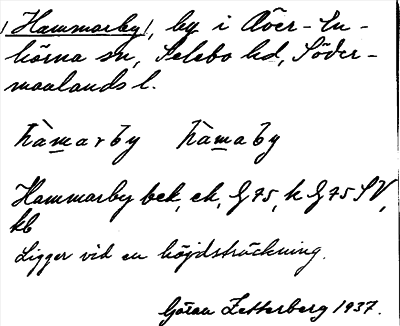 /Hammarby/, by i Över-En-
hörna sn, Selebo hd, Söder-
manlands l.
hàmarby hàmaby
Hammarby bek, ek, G 75, h G 75 SV,
kb
Ligger vid en höjdsträckning.
Göran Zetterberg 1937.